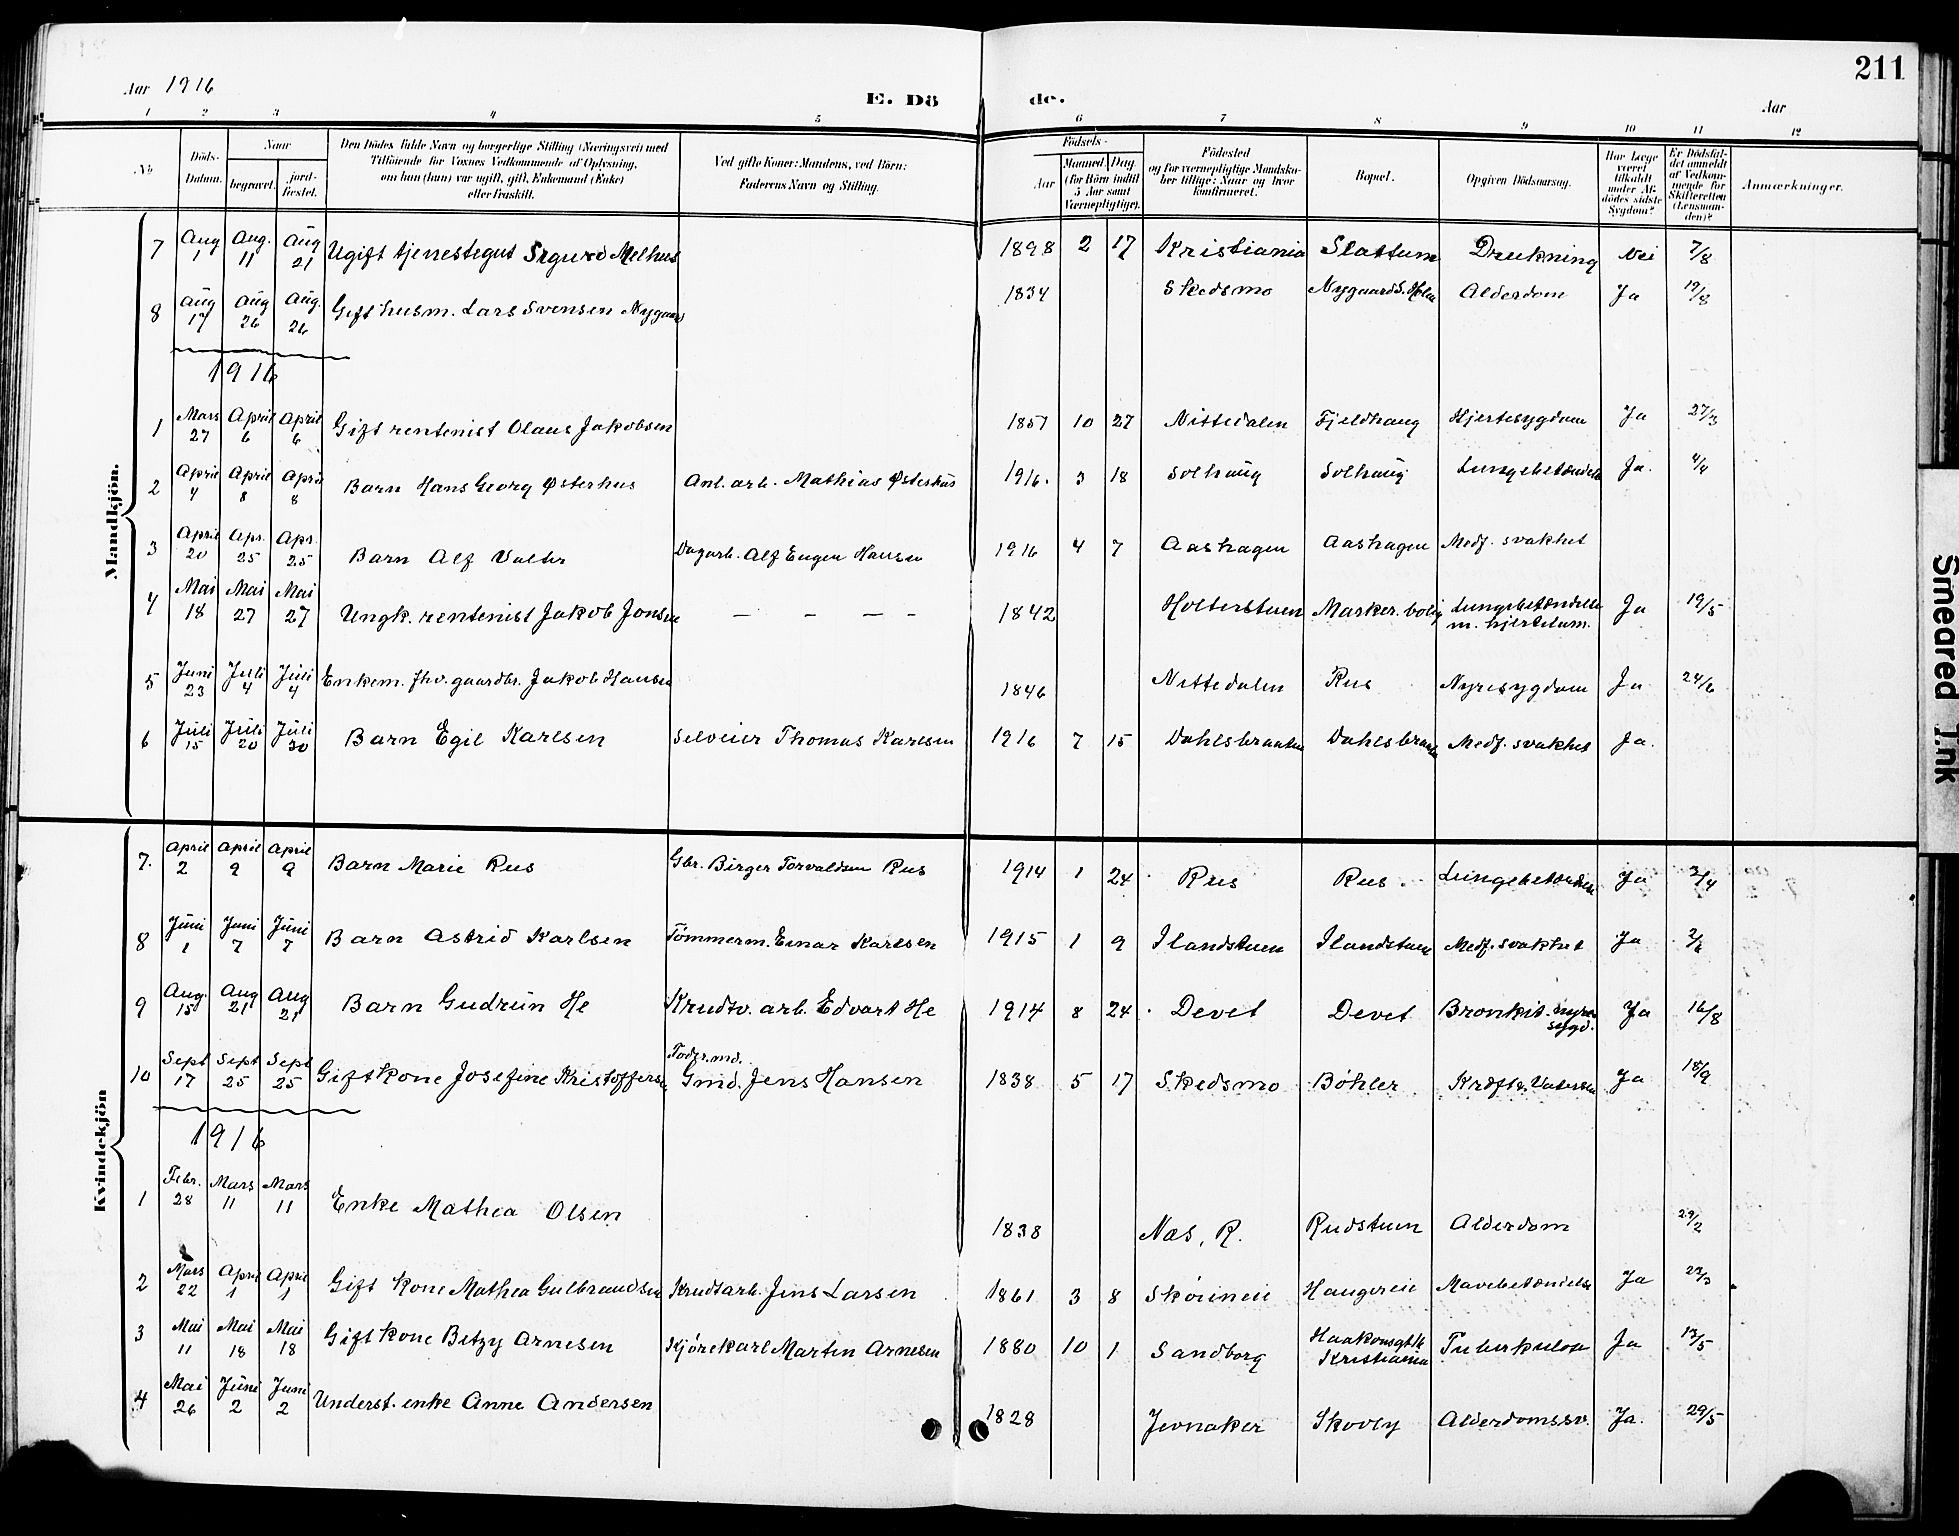 211
Aar 1916
E. Dö de.
Aar
1 2 3 4 5 6 7 8 9 10 11 12
No.
Döds-Datum.
Naar
begravet.
jord-fæstet.
Den Dödes fulde Navn og borgerlige Stilling (Næringsvei) med
Tilföiende for Voxnes Vedkommende af Oplysning,
om han (hun) var ugift, gift, Enkemand (Enke)
eller fraskilt.
Ved gifte Koner: Mandens, ved Börn:
Faderens Navn og Stilling.
Födsels-
Aar
Maaned. Dag.
(for Börn indtil
5 Aar samt
Værnepligtige).
Födested
og for værnepligtige Mandska-
ber tillige: Naar og hvor
konfirmeret.
Bopæl.
Opgiven Dödsaarsag.
Har Læge
været
tilkaldt
under Af-
dödes sidste
Sygdom?
Er Dödsfal-
det anmeldt
af Vedkom-
mende for
Skifteretten
(Lensman-
den)?
Anmærkninger.
Mandkjön.
7 Aug 1 Aug. 11 Aug 21 Ugift tjenestegut Sigurd Melhus 1898 2 17 Kristiania Slattum Drukning Nei 7/8
8 Aug 17 Aug 26 Aug. 26 Gift husm. Lars Svensen Nygaard 1834 Skedsmo Nygaard S. Alderdom Ja 19/8
1916
1 Mars 27 April 6 April 6 Gift rentenist Olaus Jakobsen 1857 10 27 Nittedalen Fjeldhaug Hjertesygdom Ja 27/3
2 April 4 April 8 April 8 Barn Hans Georg Østerhus Anl. arb. Mathias Østerhus 1916. 3 18 Solhaug Solhaug Lungebetændelse Ja. 4/4
3 April 20 Apr. 25 Apr. 25 Barn Alf Valter Dagarb. Alf Eugen Hansen 1916 4 7 Aashagen Aashagen Medf. svakhet
4 Mai 18 Mai 27 Mai 27 Ungk. rentenist Jakob Jonsen — – — – 1842 Holterstuen Marker. bolig Lungebetændelse
m. hjertelam. Ja 19/5
5 Juni 23 Juli 4 Juli 4 Enkem. fhv. gaardbr. Jakob Hansen 1846 Nittedalen Rus Nyresygdom Ja 24/6
6 Juli 15 Juli 20 Juli 30 Barn Egil Karlsen Selveier Thomas Karlsen 1916 7 15 Dahlsbraaten Dahlsbraaten Medf. svakhet Ja.
Kvindekjön
7. April 2 April 9 April 9 Barn Marie Rus Gbr. Birger Torvaldsen Rus 1914 1 24 Rus Rus. Lungebetændelse Ja 2/4
8 Juni 1 Juni 7 Juni 7 Barn Astrid Karlsen Tømmerm. Einar Karlsen 1915 1 9 Ilandstuen Ilandstuen Medf. svakhet Ja 2/6
9 Aug. 15 Aug 21 Aug 21 Barn Gudrun He Krudtv. arb. Edvart He 1914 8 24 Devet Devet Bronkit. nyre
sygd. Ja 16/8
10 Sept 17 Sept 25 Sept 25 Gift kone Josefine Kristoffersen Foder.md.
Gmd. Jens Hansen 1838 5 17 Skedsmo Bøhler Kræft Ja 18/9
1916
1 Febr. 28 Mars 11 Mars 11 Enke Mathea Olsen 1838 Nas, R. Rudstuen Alderdom 29/2
2 Mars 22 April 1 April 1 Gift kone Mathea Gulbrandsen Krudtarb. Jens Larsen 1861 3 8 Skøieneie Haugereie Mavebetændelse Ja 22/3
3 Mai 11 Mai 18 Mai 18 Gift kone Betzy Arnesen Kjørekarl Martin Arnesen 1880 10 1 Sandborg Haakonsgt.
Kristiania Tuberkulose Ja 12/5
4 Mai 26 Juni 2 Juni 2 Underst. enke Anne Andersen 1828 Jevnaker Skovly Alderdomssv. Ja. 29/5
Smeared Ink